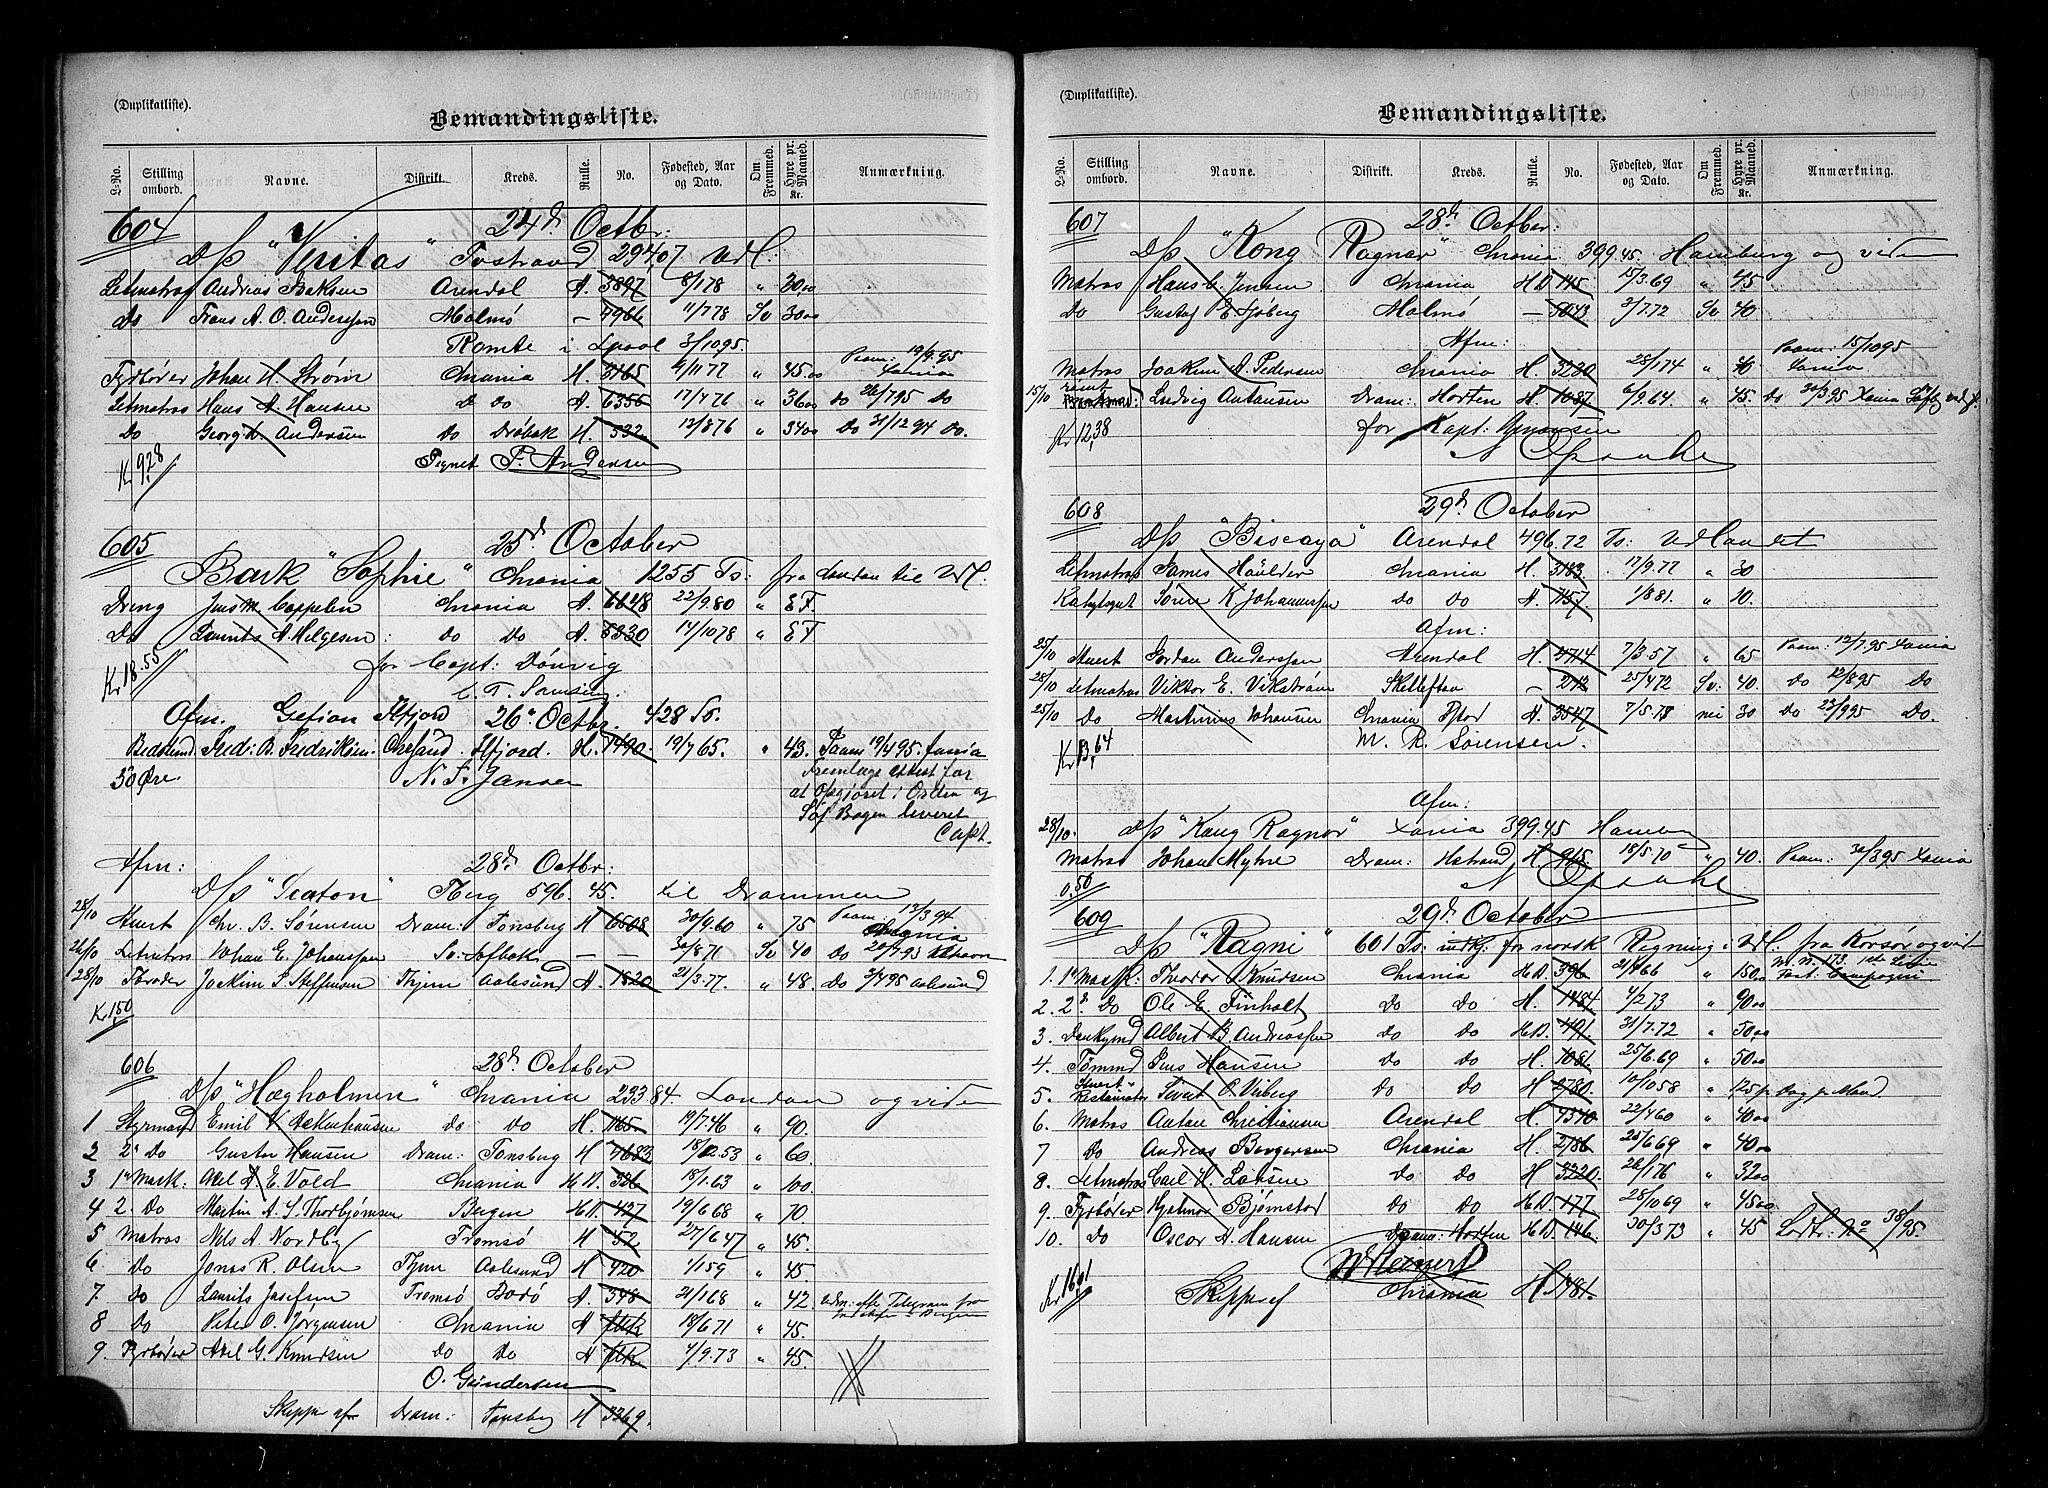 (Duplikatliste).
Bemandingsliste.
L-No. Stilling ombord. Navne. Distrikt. Kreds. Rulle. No. Fødested, Aar og Dato. Om Fremmed. Hyre pr. Maaned. Kr. Anmærkning.
604 24de Octbr:
D/s "Veritas" Tvstrand 294.07 Udl:
Letmatros Andreas Isaksen Arendal A. 3897 8/1 78 " 30.00
Do Frans A. O. Anderssen Malmö — 7966 11/7 78 Sv 30.00
Romte i Lpool 3/10 95.
Fyrbøder Johan H. Strøm Chrania H. 3165 9/11 77 " 45.00 Paam: 19/9.95 Xania
Letmatros Hans A. Hansen d Do A. 6356 17/4 76 " 36.00 Do 26/7 95 Do
Do Georg Andersen Do Drøbak H. 532 13/8 76 " 34.00 Do 31/12 94 Do.
Kr 9.28 Tegnet P. Andersen
605 25de October
Bark "Sophie" Chrania 1255 Ts: fra London til Udl.
Dreng Jens M. Cappelen Chrania A. 6648 22/9.80 " E F.
Do Laurits A. Helgesen Do Do A. 6330 14/10 78 " E F
Kr 18.55 for Capt: Dønvig
C. F. Samsing.
Afm. Gefion Ilfjord 26de Octbr. 428 Ts.
Bedstmd Fredr. B. Fredriksen. Ilfjord. H. 1490 19/7 65. " 43. Paam 19/4 95. Xania
30 Øre. N. S. Jansen Fremlagt attest for
at Opgjøret i Orden og
Søf Bogen leveret
Capt.
Afm: 28de Octbr:
D/s "Seaton" Tberg 596.45. til Drammen
28/10 Stuert Chr. B. Sørensen Dram: Tønsberg H 6608 30/9.60 " 75 Paam: 13/3 94 Chrania
26/10 Letmatros Johan E. Johanssen Sv: — — 30/8 71 Sv 40 Do 20/9 95
28/10 Joakim S. Steffensen Thjem Aalesund A. 1820 21/3.77. " 48. Do 3/4 95 Aalesund
Kr 1.50
606 28de October
D/s "Hægholmen" Chrania 233.84 London og viden
1 Styrmand Emil Ackenhausen Do Do H. 1165 19/7.46 " 90.
2 2den Do Gustav Hansen Dram: Tønsberg H 7683 18/12.53 " 60
3 1ste Mask. Axel A. E. Vold Chrania H.D. 326 18/1.63 " 100.
4 2. Do Martin A. S. Thorbjørnsen Bergen HD. 497 19/6 68 " 70.
5 Matros Nils A. Nordby Tromsø H 52 27/6 47 " 45.
6 Do Jonas R. Olsen Thjem Aalesund H 920 1/1 59 " 45
7 Do Laurits Josefsen Tromsø Bodø A. 348 21/1 68 " 42
8 Do Peter O. Jørgensen Chrania A 18/6 71 " 45.
9 Fyrbøder Axel G. Knudsen Do Do A 4/9.73 " 45.
O. Gundersen
Skipper af Dram: Tønsberg H 3369.
(Duplikatliste).
Bemandingsliste.
L-No. Stilling ombord. Navne. Distrikt. Kreds. Rulle. No. Fødested, Aar og Dato. Om Fremmed. Hyre pr. Maaned. Kr. Anmærkning.
607 28de Octbr:
D/s "Kong Ragnar" Chrania 399.45. Hamburg og viden
Matros Hans C. Jensen Chrania H.D. 145 15/3.69 " 45
Do Gustaf E. Sjöberg Malmö — 5043 3/7.72 Sv 40
Afm:
Matros Joakim A. Pedersen Chrania H. 3280 28/1 74 " 40 Paam: 15/10 95 Xania
15/10 Ludvig Antonsen Dram: Horten H. 1087 6/9.64. " 45. Do 30/3 95 Xania
Kr 12.38 for Kapt:
N. Opsahl
608 29de October
D/s "Biscaya" Arendal 496.72 Ts: Udlandet
Letmatros James Haulder Chrania H. 3183 17/9.77 " 30
Kahytsgut Sören K Johannessen Do Do A. 7157 1/8 81. " 10.
Afm:
25/10 Stuert Jordan Anderssen Arendal H. 2714 7/3.57 " 65 Paam: 12/7.95 Xania
28/10 Letmatros Viktor E. Vikström Skelleftea — 242 25/4 72 Sv: 40. Do 12/8 95 Do
25/10 Do Martinius Johansen Chrania Fstad A. 3547 7/5.78 nei 30 Do 23/9 95 Do.
M. R. Sørensen.
Afm:
28/10. D/s "Kong Ragnar" Xania 399.45 Hamburg
Matros Johan Myhre Dram: Hstrand H. 915 18/5.70 " 40. Paam: 30/3 95 Xania
0.50 N. Opsahl
609 29de October
D/s "Ragni" 601 Ts: indkj. for norsk Regning: Udl. fra Korsør og vid
1. 1ste Theodor Knudsen Chrania H.D. 396 21/4 66 " 150.00
2. 2de Do Ole E. Finholt Do Do H. 1484 4/2 73 " 90.00
3. Donkymd Albert B. Andreassen Do Do H.D. 491 31/7.72 " 50.00
4. Tømmd Jens Hansen Do Do H. 1081 25/6.69 " 50.00
5. Stuert Restauratør Sivert O. Viberg Do Do H 2780 10/10 58 " 1.25 pr Dag pr Mand
6. Matros Anton Christiansen Arendal H. 4540 22/4 60 " 40.00
7 Do Andreas Borgersen Chrania H. 2786 25/6 69 " 40.00
8. Letmatros Carl H. Larsen Do Do H 3220 26/1 76 " 32.00
9. Fyrbøder Hjalmar Bjørnstad Do Do H.D. 177 28/10 69 " 45.00
10. Do Oscar A. Hansen Dram: Horten H.D. 146 30/3 73 " 45 No 38/95.
Kr 16.01 Skipper af Chrania H. 1481.